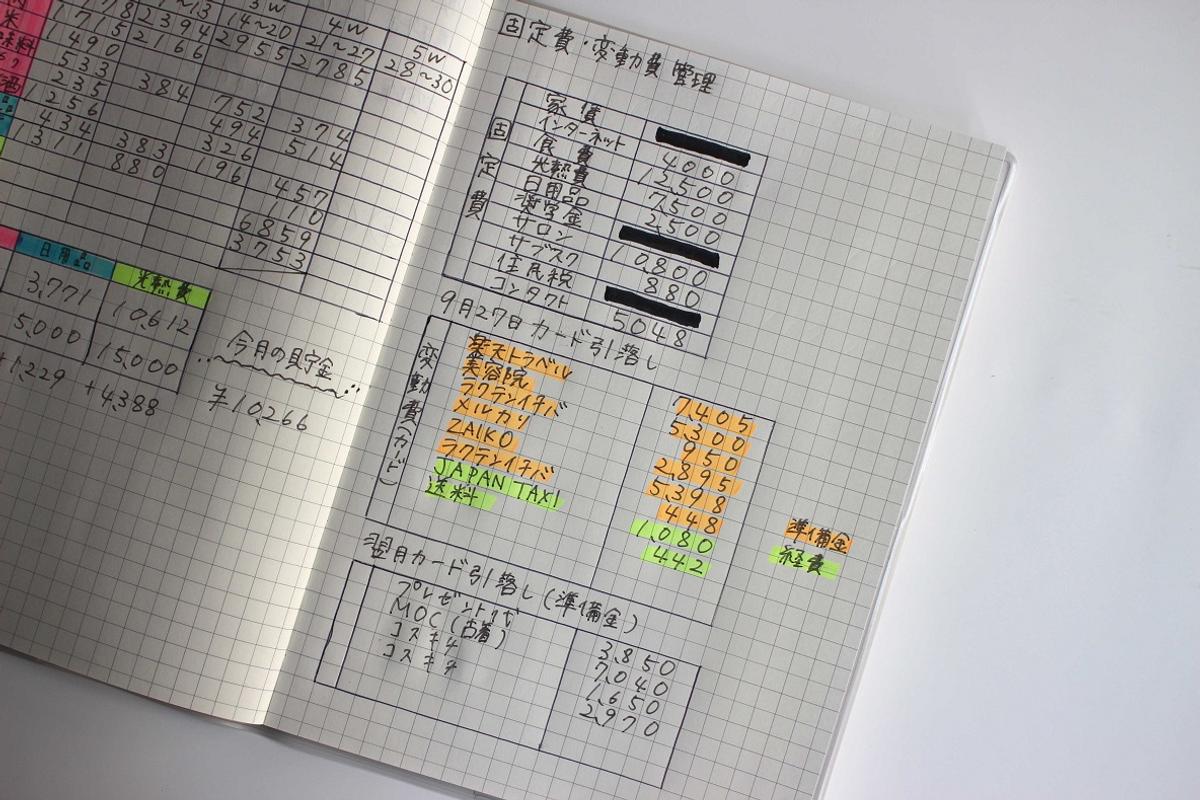 3W
4W
5W
~13
14~20
21~27
28~30
米
1715
2394
2955
2785
490
2166
533
235
384
752
374
1256
494
514
434
383
326
1311
880
196
457
110
6859
3753
日用品
光熱費
3,771
10,612
5,000
15,000
+1,229
+4,388
今月の貯金
¥10,266
固定費・変動費管理
固定費
家賃
インターネット 4000
食費 12,500
光熱費 7,500
日用品 2,500
奨学金
サロン 10,800
サブスク 880
住民税
コンタクト 5048
9月27日カード引落し
変動費(カード)
楽天トラベル 7,405
美容院 5,300
ラクテンイチバ 950
メルカリ 2,895
ZAIKO 5,398
ラクテンイチバ 448
JAPAN TAXI 1,080
送料 442
準備金
経費
翌月カード引落し(準備金)
プレゼント代 3,850
MOC(古着) 7,040
コスキチ 1,650
コスキチ 2,970